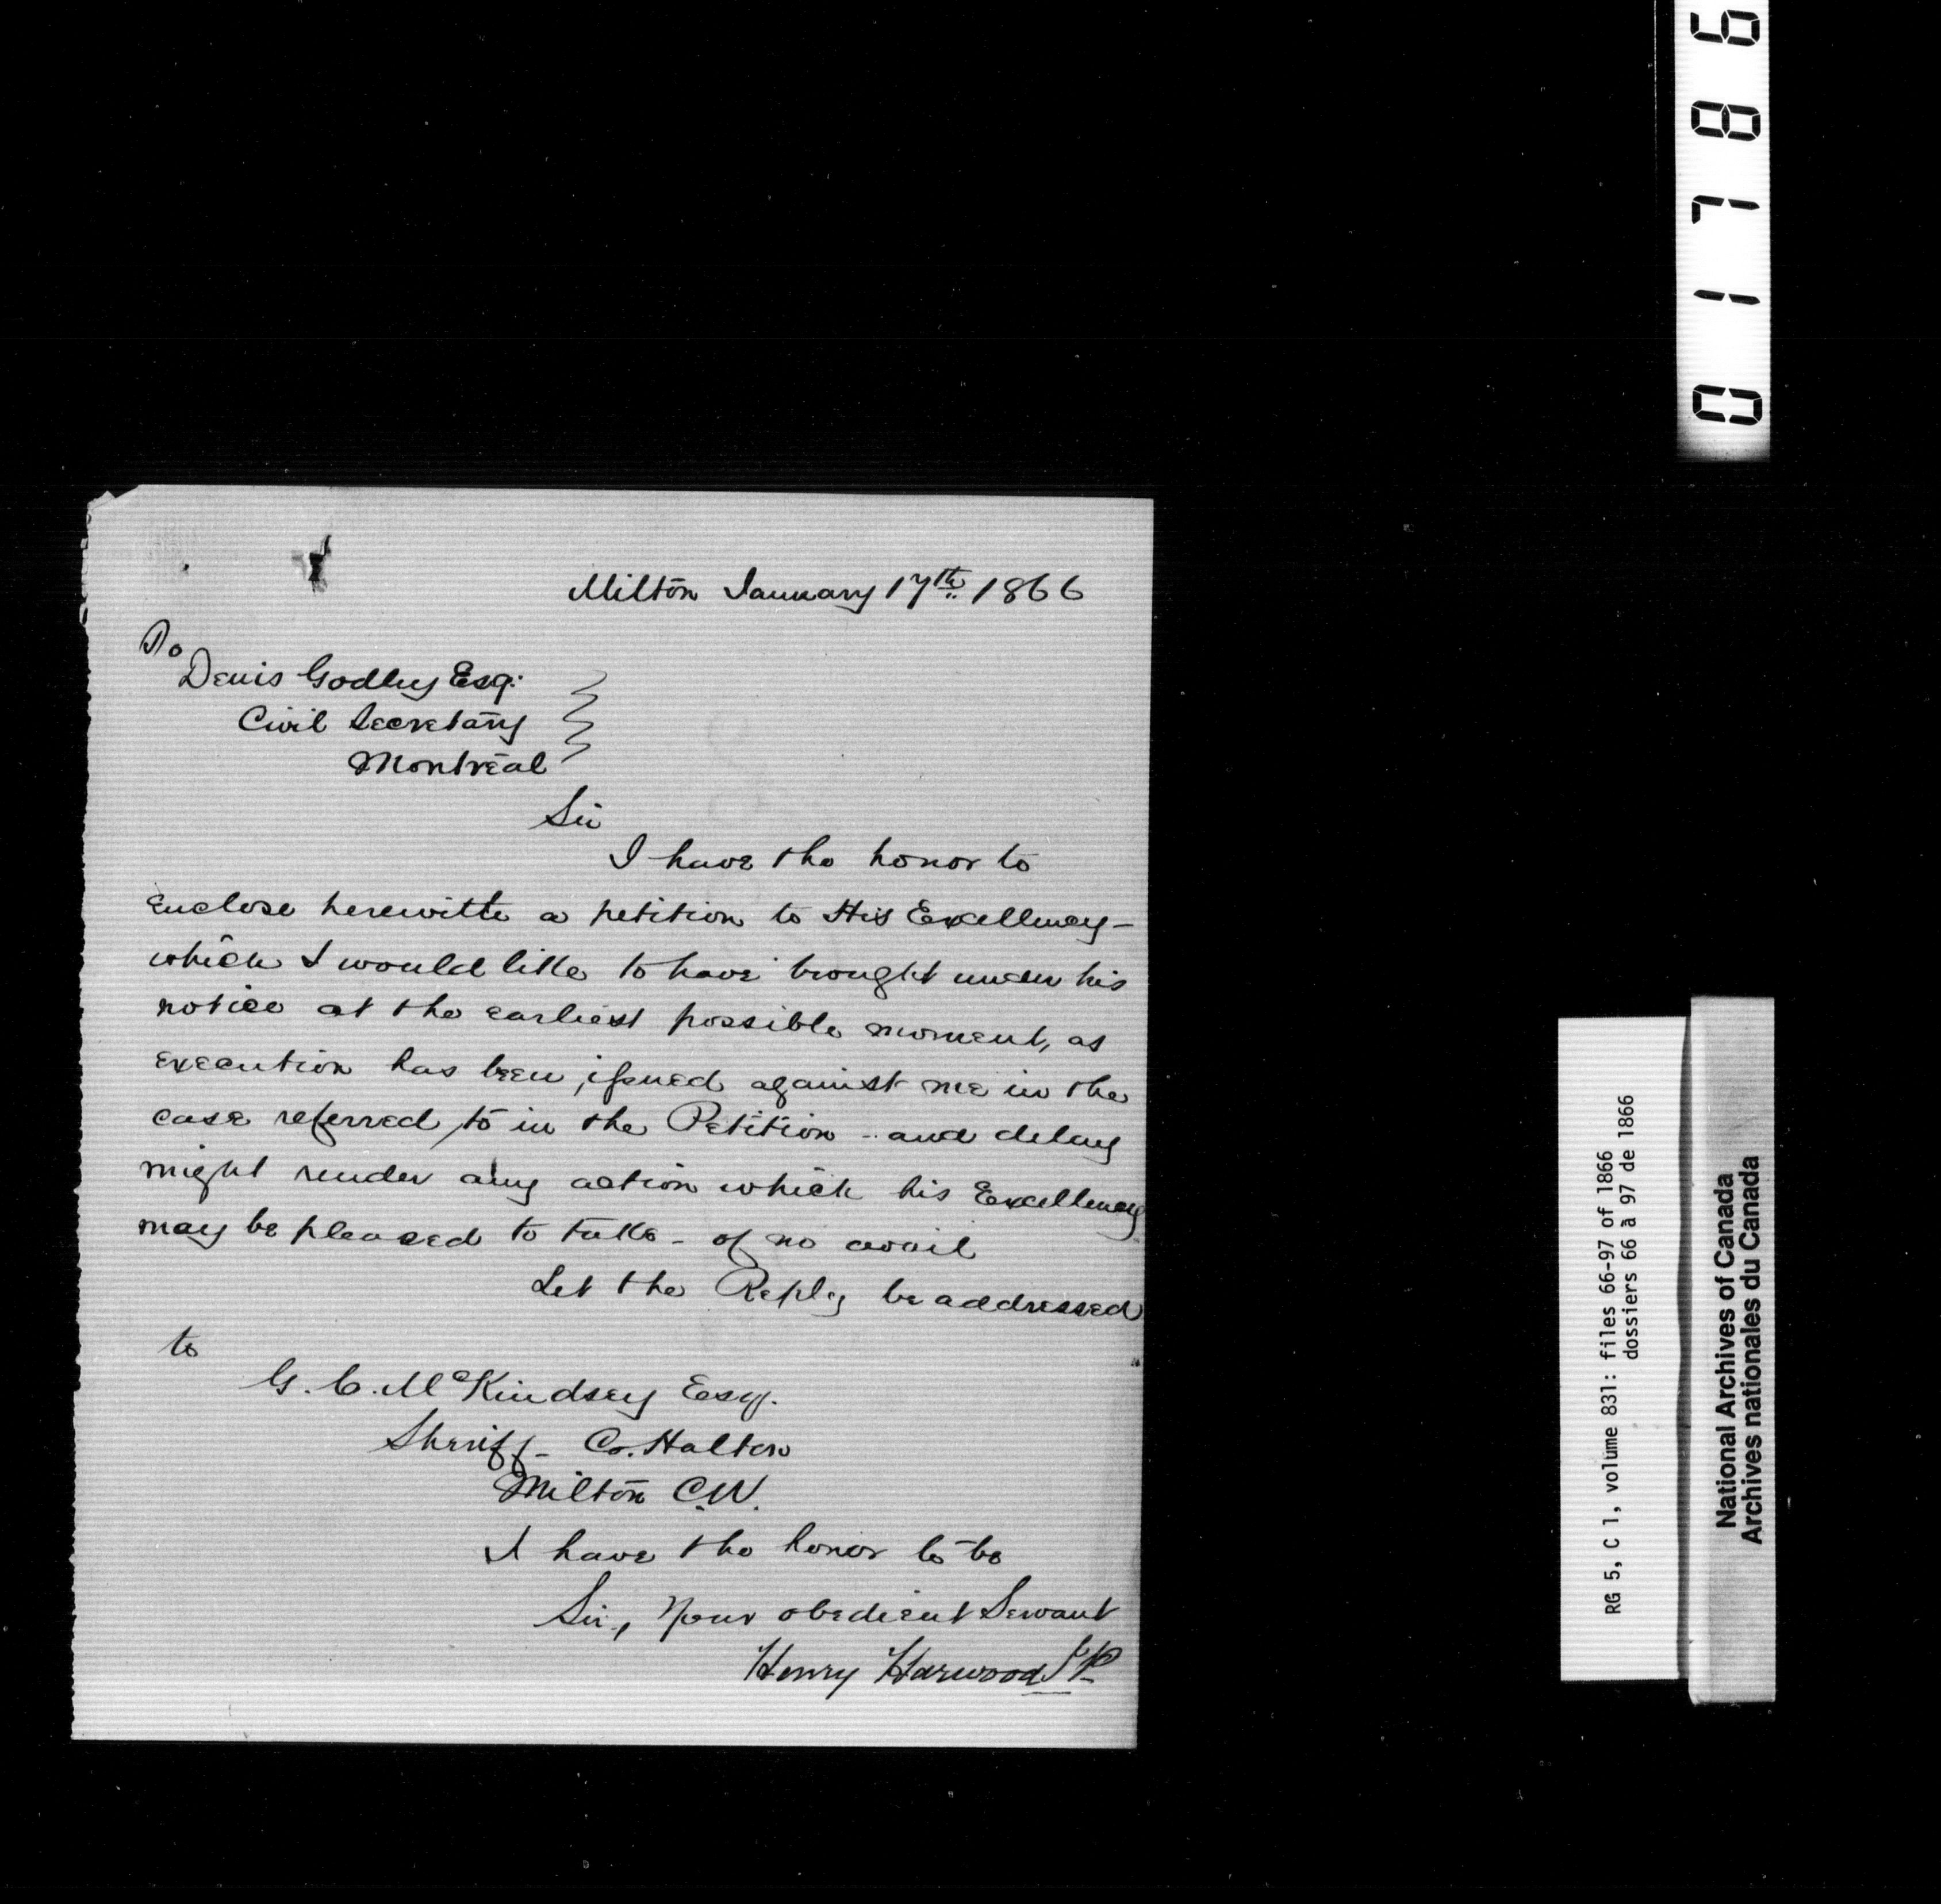 Milton January 17th 1866
To
Denis Godley Esq:
Civil Secretary
Montreal
Sir
I have the honor to
enclose herewith a petition to His Excellency –
which I would like to have brought under his
notice at the earliest possible moment, as
execution has been issued against me in the
case referred to in the Petition - and delay
might render any action which his Excellency
may be pleased to take - of no avail
Let the Reply be addressed
to
G. C. McKindsey Esq.
Sheriff - Co. Halton
Milton C.W.
I have the honor to be
Sir, Your obedient Servant
Henry Harwood JP
01786
RG 5, C 1, volume 831: files 66-97 of 1866
dossiers 66 à 97 de 1866
National Archives of Canada
Archives nationales du Canada